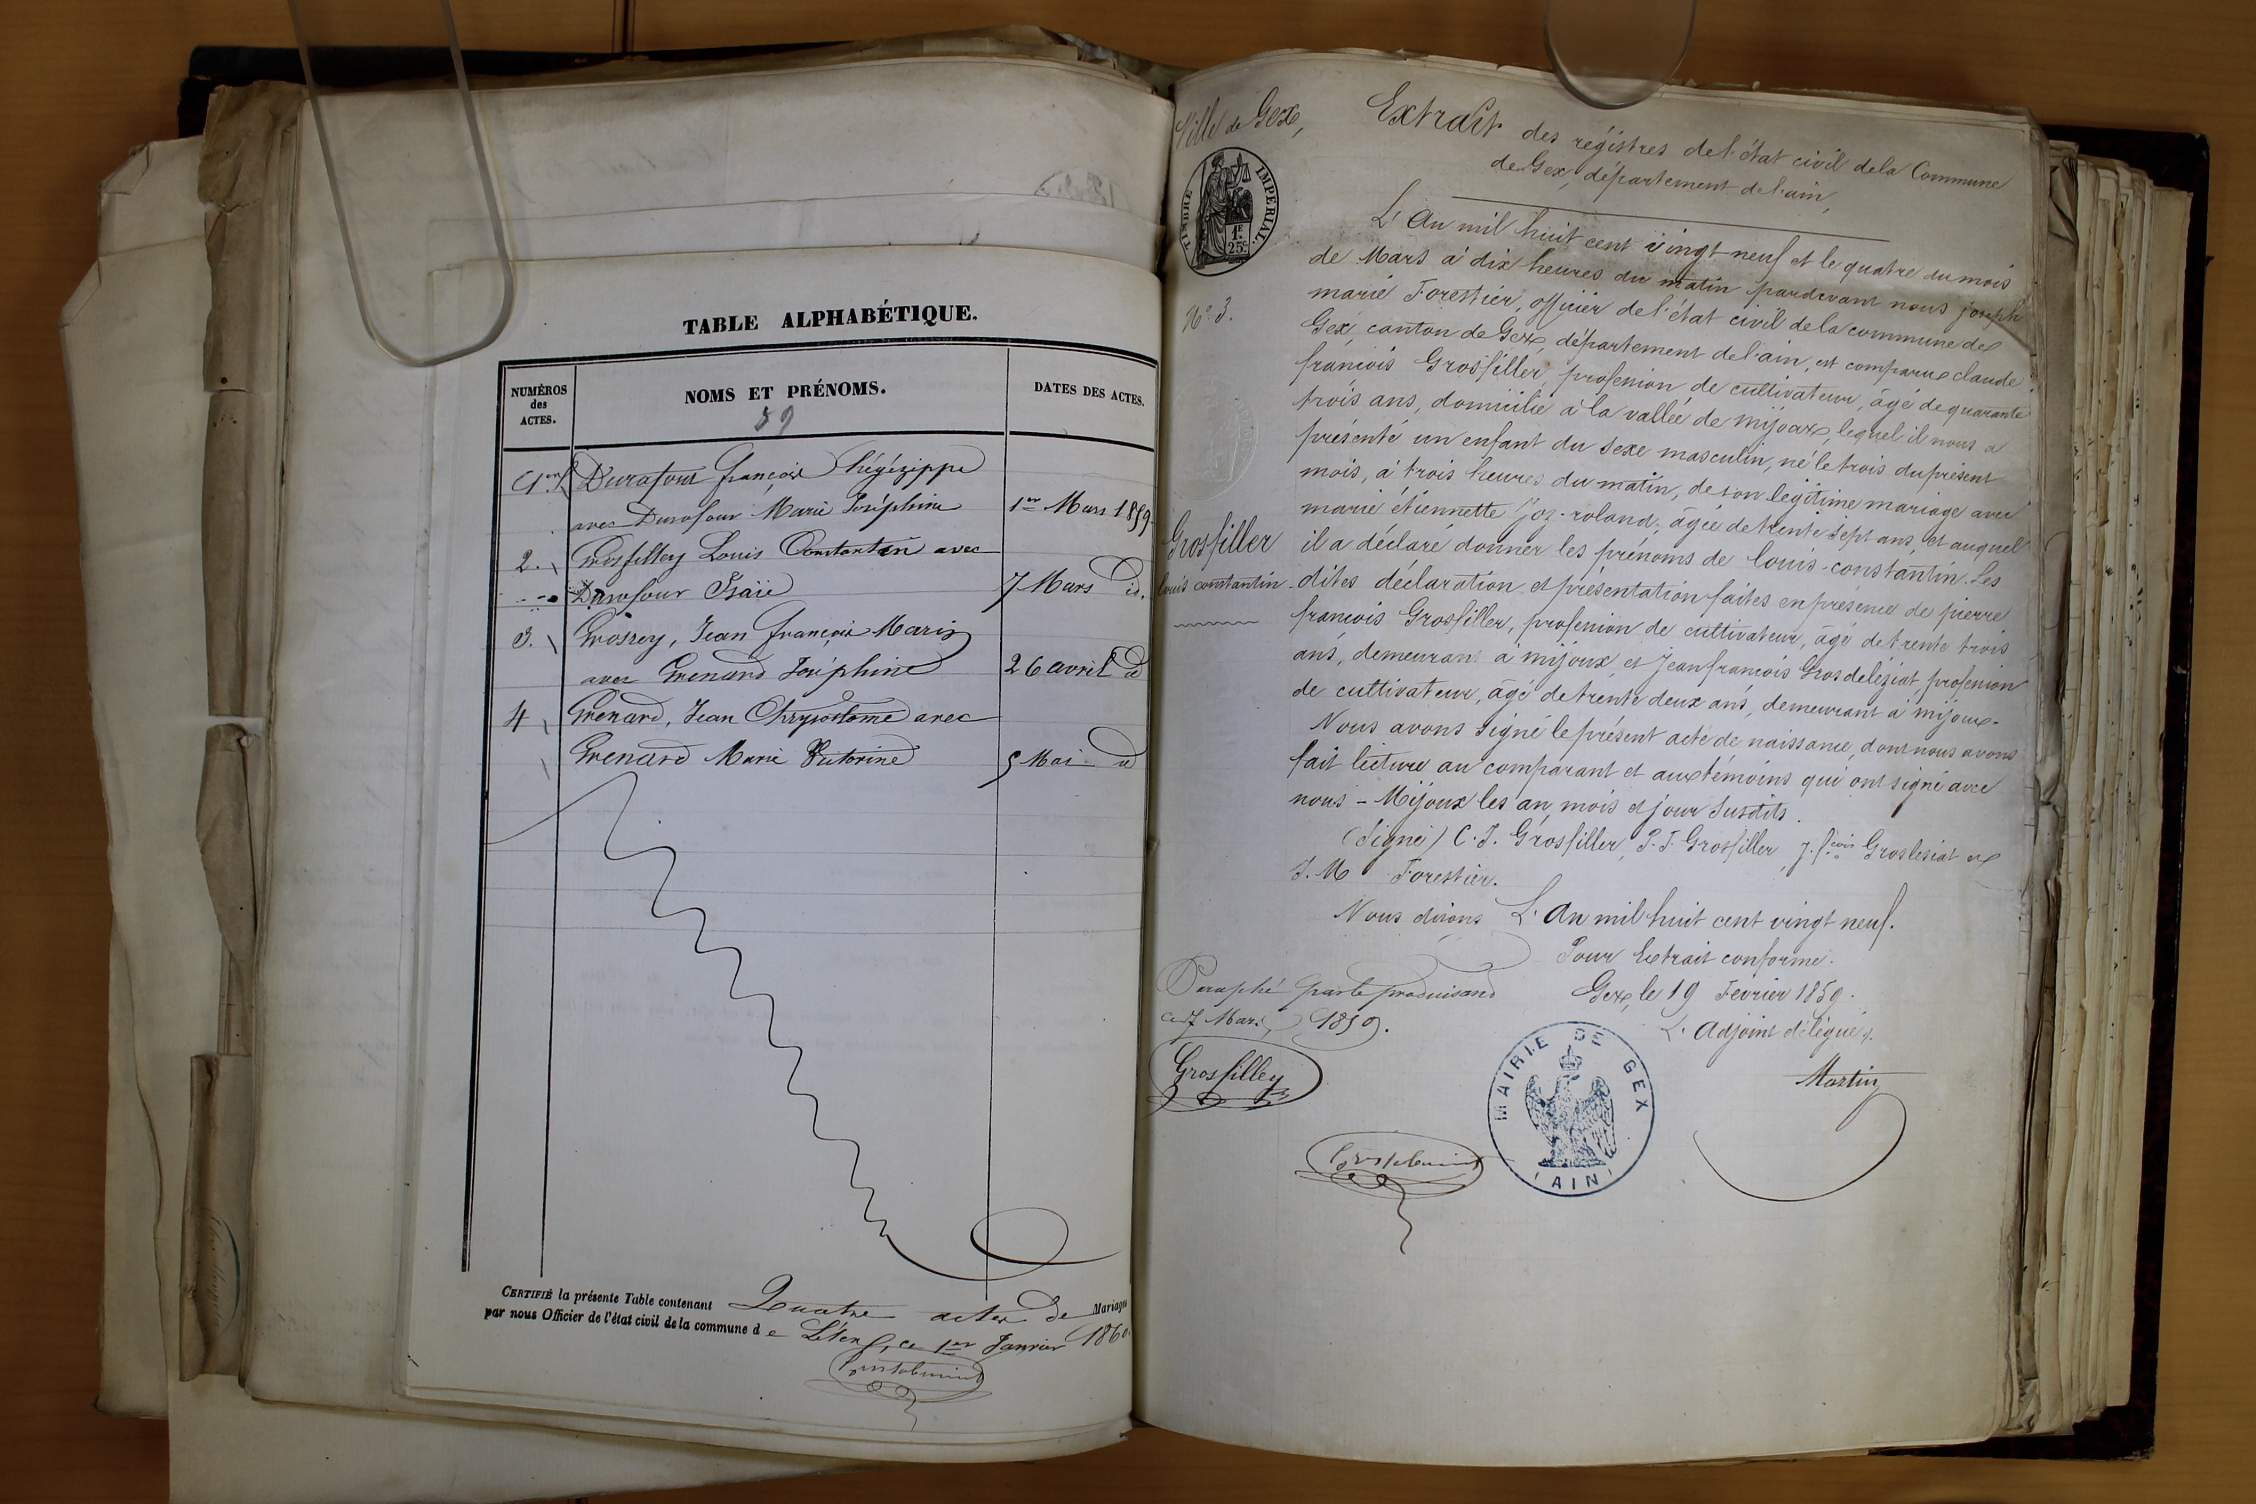 TABLE ALPHABÉTIQUE.
NUMÉROS
des
ACTES.
NOMS ET PRÉNOMS.
DATES DES ACTES.
59
1er Durafour François hégézippe
avec Durafour Marie Joséphine 1er Mars 1859
2. Grosfilley Louis Constantin avec
Durafour Isaïe 7 Mars id.
3. Grossey, Jean François Marie
avec Grenard Joséphine 26 avril d
4 Grenard, Jean Chrysostome avec
Grenard Marie Victorine 5 Mai d
CERTIFIÉ la présente Table contenant Quatre actes de Mariage
par nous Officier de l'état civil de la commune de Lélex, ce 1er Janvier 1860.
Ville de Gex,
TIMBRE IMPÉRIAL.
1F.
25c.
No. 3.
Extrait des régistres de l'état civil de la Commune
de Gex, département de l'ain,
L'An mil huit cent vingt-neuf et le quatre du mois
de Mars à dix heures du matin pardevant nous joseph
marie Forestier, officier de l'état civil de la commune de
Gex, canton de Gex, département de l'ain, est comparu claude
françois Grosfiller, profession de cultivateur, âgé de quarante
trois ans, domicilié à la vallée de mijoux, lequel il nous a
présenté un enfant du sexe masculin, né le trois du présent
mois, à trois heures du matin, de son légitime mariage avec
marie étiennette Joz-roland, âgée de trente sept ans, et auquel
il a déclaré donner les prénoms de louis-constantin. Les
dites déclaration et présentation faites en présence de pierre
françois Grosfiller, profession de cultivateur, âgé de trente trois
ans, demeurant à mijoux, et Jean françois Grosdelésiat, profession
de cultivateur, âgé de trente deux ans, demeurant à mijoux.
Nous avons signé le présent acte de naissance, dont nous avons
fait lecture au comparant et aux témoins qui ont signé avec
nous - Mijoux les an, mois et jour susdits.
(Signé) C. F. Grosfiller, P. F. Grosfiller, J. fçois Groslésiat et
J. M Forestier.
Nous disons L'An mil huit cent vingt neuf.
Pour Extrait conforme.
Gex, le 19 Février 1859.
L'Adjoint délégué.
Martin
Grosfiller
louis constantin
Paraphé par le produisant
ce 7 Mars, 1859.
Grosfilley
MAIRIE DE GEX
(AIN)